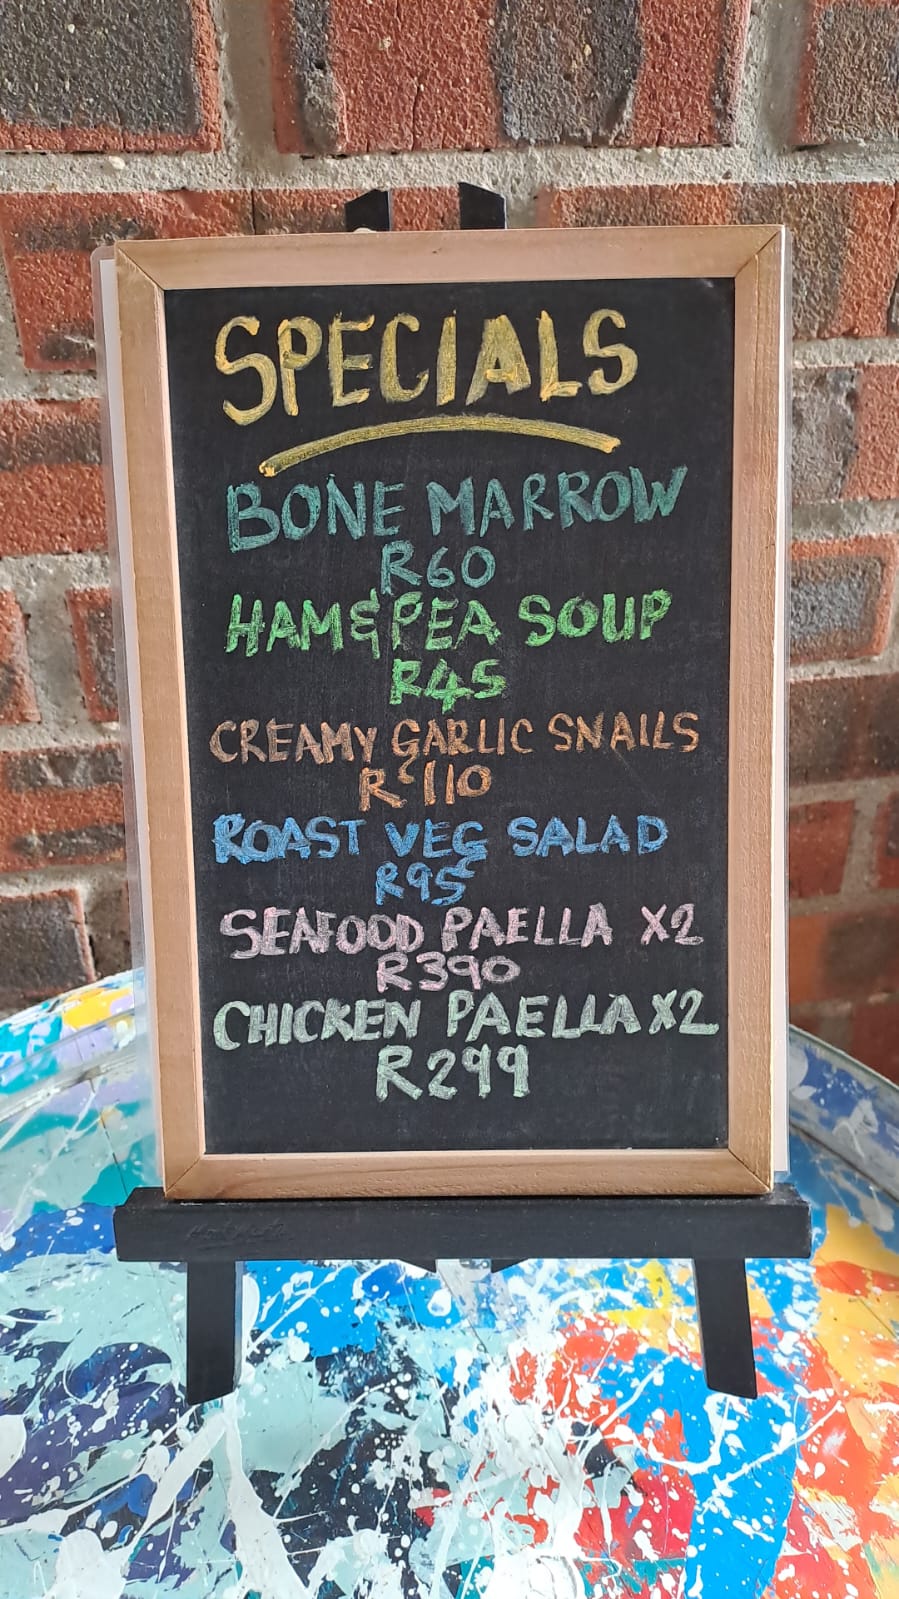 SPECIALS
BONE MARROW
R60
HAM & PEA SOUP
R45
CREAMY GARLIC SNAILS
R110
ROAST VEG SALAD
R95
SEAFOOD PAELLA X2
R390
CHICKEN PAELLA X2
R299